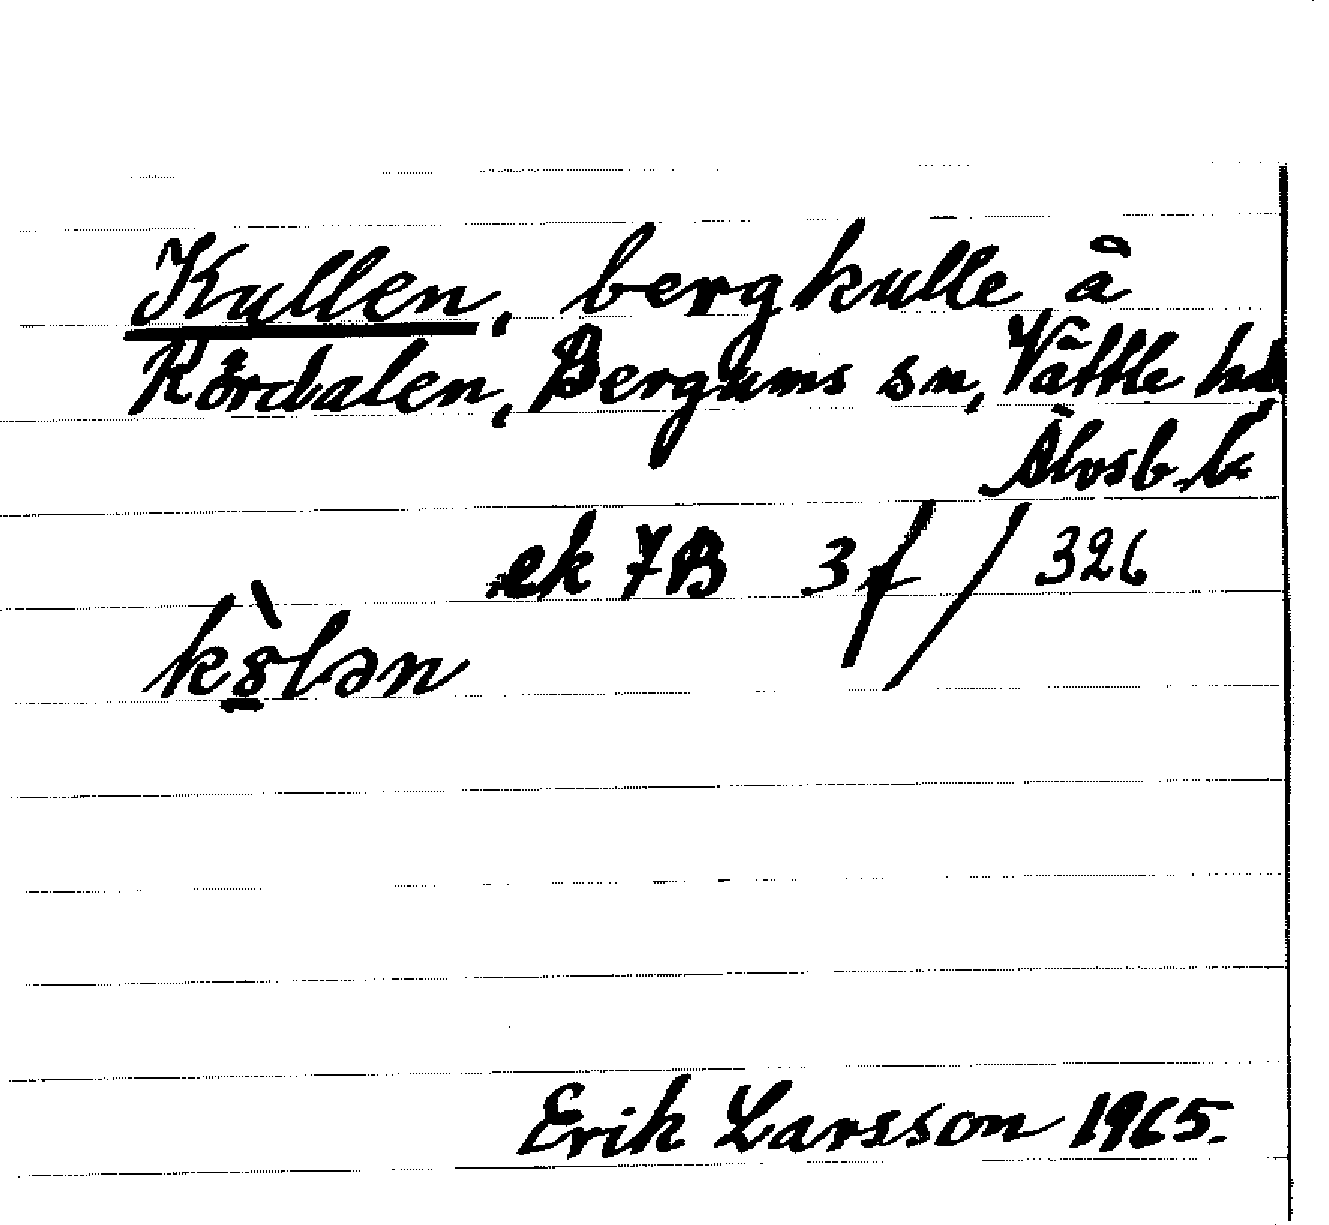 Kullen, bergkulle å
Rördalen, Bergums sn, Vättle hd
Älvsb. l.
ek 7B 3f/326
kò̱8lən
Erik Larsson 1965.